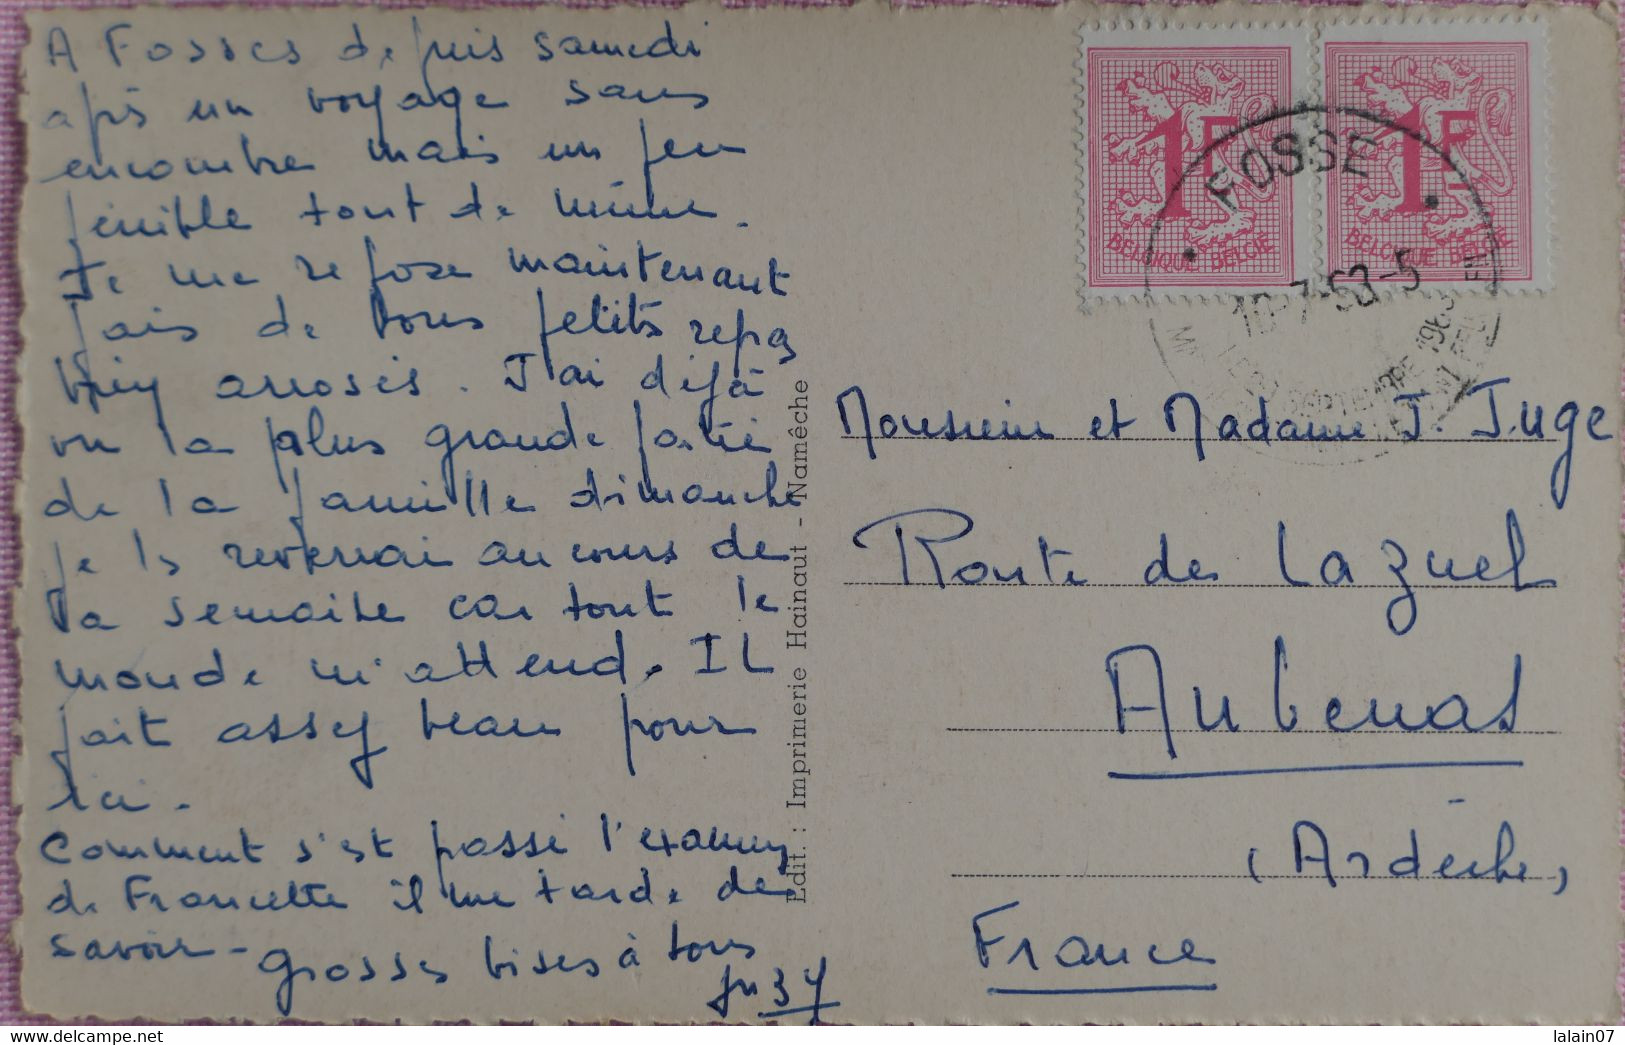 A Fosses depuis samedi
après un voyage sans
encombre mais un peu
pénible tout de même.
Je me repose maintenant
fais de bons petits repas
bien arrosés. J'ai déjà
vu la plus grande partie
de la famille dimanche
je la reverrai au cours de
la semaine car tout le
monde m'attend. IL
fait assez beau pour
ici.
Comment s'est passé l'examen
de Francette il me tarde de
savoir - grosses bises à tous
Edit.: Imprimerie Hainaut - Namêche
1F
BELGIQUE BELGIË
1F
BELGIQUE BELGIË
FOSSE
10-7-63-5
SEPTEMBRE 1963
Monsieur et Madame J. Juge
Route de Lazuel
Aubenas
(Ardèche)
France
lalain07